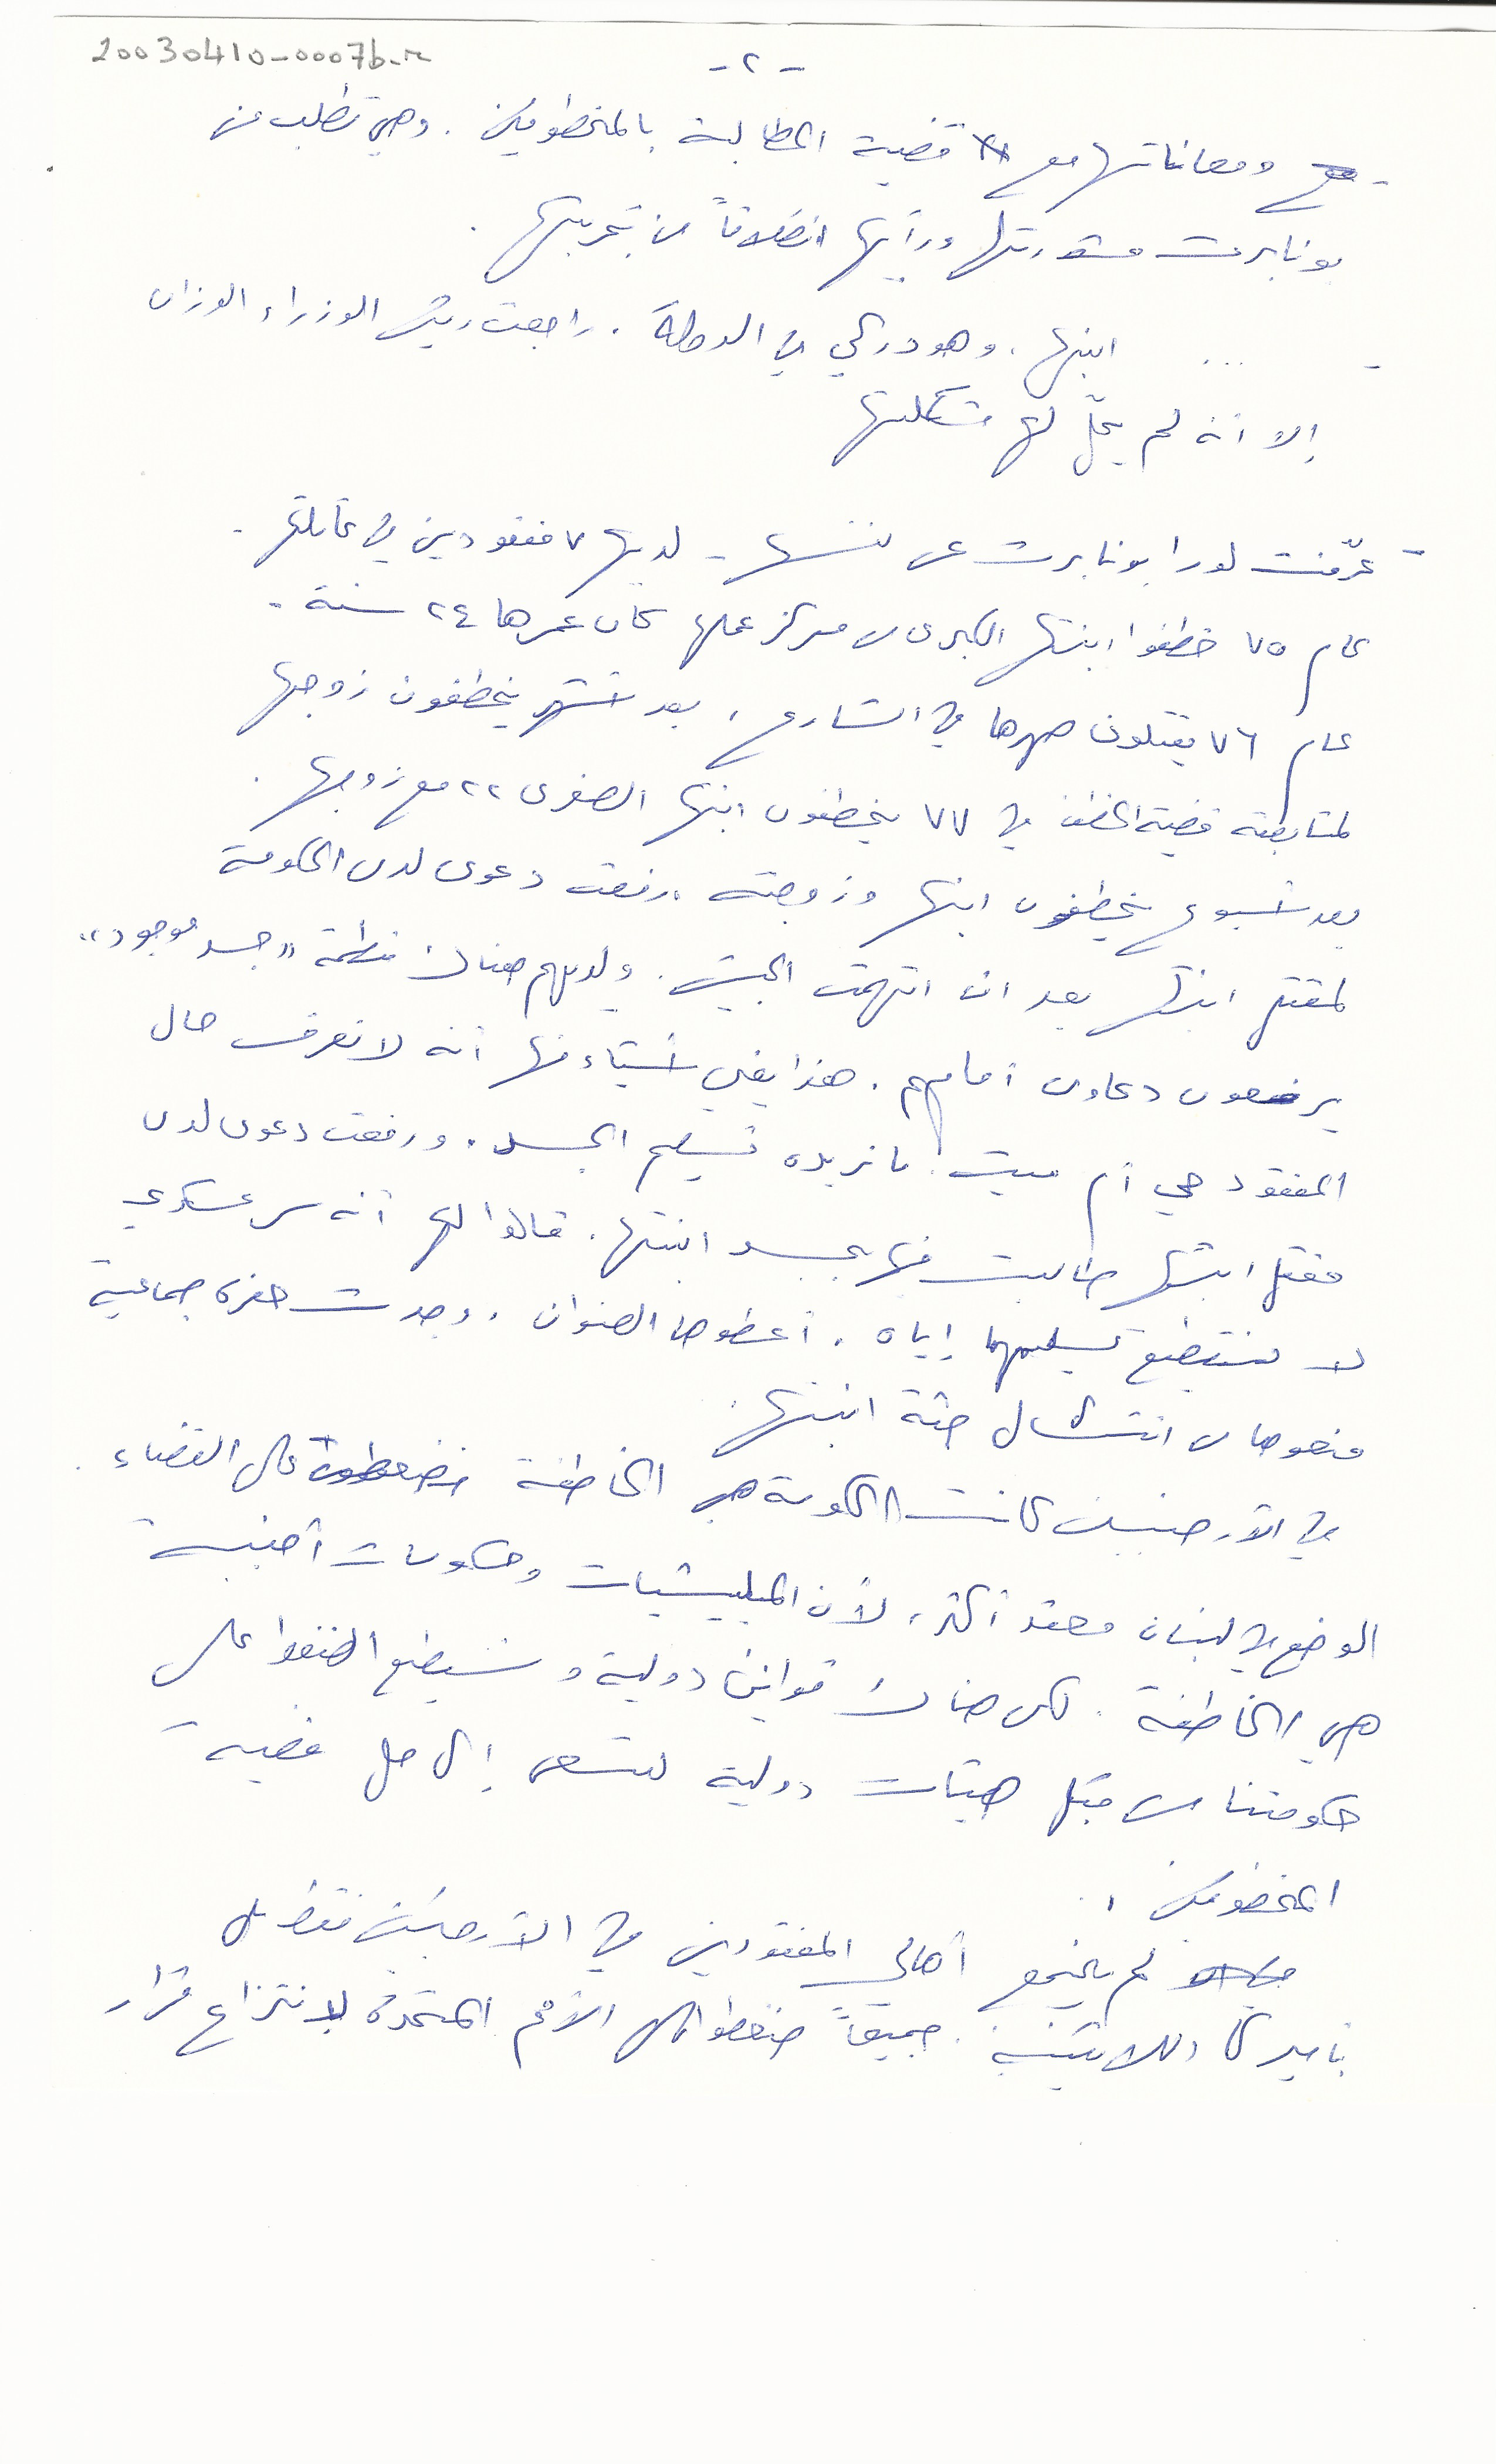 20030410-0007b-r
- ٢ -
- ومعاناتها مع قضية المطالبة بالمخطوفين. وهي تطلب من
بونابرت مشورتها ورأيها انطلاقاً من تجربتها.
- ... ابنها، وهو دركي في الدولة. راجعت رئيس الوزراء الوزان
إلا أنه لم يحلّ لها مشكلتها
- عرّفت لورا بونابرت عن نفسها - لديها ٧ مفقودين في عائلتها -
عام ٧٥ خطفوا ابنتها الكبرى من مركز عملها كان عمرها ٢٤ سنة -
عام ٧٦ يقتلون صهرها في الشارع، بعد أشهر يخطفون زوجها
لمتابعته قضية الخطف في ٧٧ يخطفون ابنتها الصغرى ٢٢ مع زوجها.
بعد أسبوع يخطفون ابنها وزوجته. رفعت دعوى لدى الحكومة
لمقتل ابنتها بعد ان اتهمت الجيش. ولديهم هناك منظمة "جسد موجود"
يرفعون دعاوى أمامهم. هذا يعني أشياء منها أنه لا نعرف حال
المفقود حي أم ميت. ما نريده تسليم الجسد. ورفعت دعوى لدى
مقتل ابنتها طالبت فيها بجسد ابنتها. قالوا لها أنه سر عسكري
لا نستطيع تسليمها إياه. أعطوها العنوان. وجدت حفرة جماعية
منعوها من انتشال جثة ابنتها.
في الأرجنتين كانت الحكومة هي الخاطفة فضغطوا على القضاء.
الوضع في لبنان معقد أكثر، لأن الميليشيات وحكومات أجنبية
هي الخاطفة. لكن هناك قوانين دولية ونستطيع الضغط على
حكومتنا من قبل هيئات دولية لتسعى إلى حل قضية
المخطوفين.
لم يجتمع أهالي المفقودين في الأرجنتين فقط بل
بأميركا اللاتينية. جميعاً ضغطوا على الأمم المتحدة لإنتزاع قرار